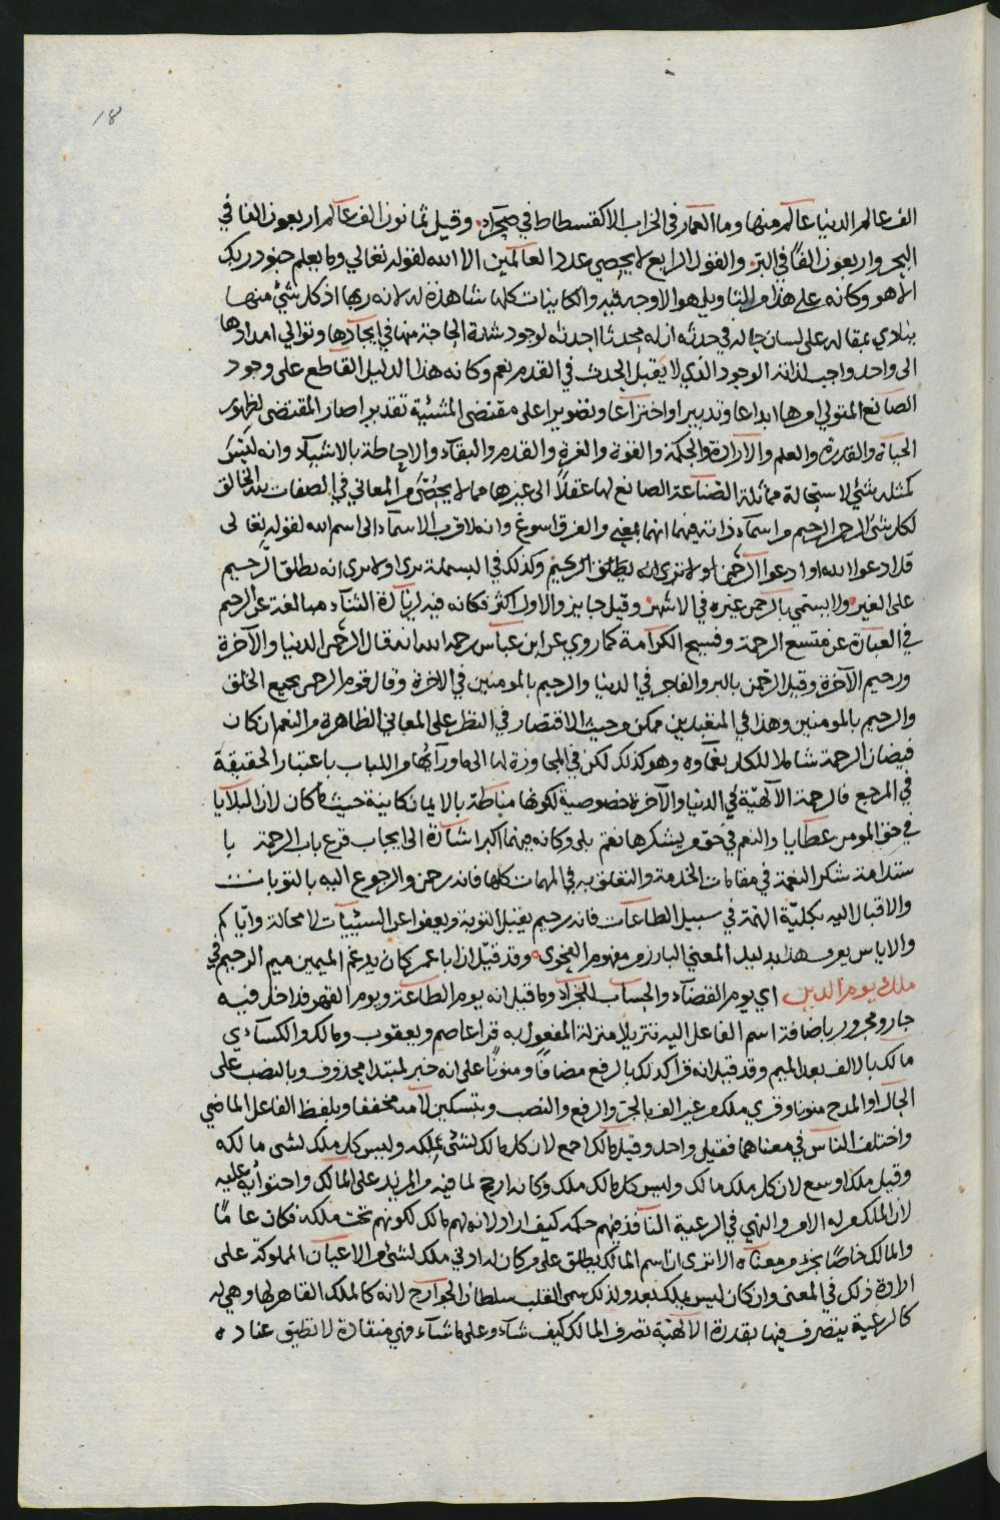 18
الف عالم الدنيا عالم منها وما العمار في الخراب الا كفسطاط في صحرآء وقيل ثمانون الف عالم اربعون الفا في
البحر واربعون الفًا في البر والقول الرابع لا يحصي عدد العالمين الا الله لقوله تعالى وما يعلم جنود ربك
الا هو وكانه على هذا من التاويل هو الاوجه فيه والكاينات كلها شاهدة له لانه ربها اذ كل شيء منها
ينادي بمقاله على لسان حاله في حدثه ان له محدثا احدثه لوجود شدة الحاجة منها في ايجادها وتوالي امدادها
الى واحد واجب لذاته الوجود الذي لا يقبل الحدث في القدم نعم وكانه هذا الدليل القاطع على وجود
الصانع المتولي امرها ابداعا وتدبيرا واختراعا وتصويرا على مقتضى المشيئة تقدير اصار المقتضى لظهور
الحياة والقدرة والعلم والارادة والحكمة والقوة والعزة والقدم والبقآء والاحاطة بالاشيآء وانه ليس
كمثله شيء لاستحالة مماثلة الصناعة الصانع لها عقلًا الى غيرها مما لا يحصى من المعاني في الصفات لله الخالق
لكل شيء الرحمن الرحيم من اسمآء ذاته فهما انهما بمعنى والفرق اسوغ وانه لاقرب الاسمآء الى اسم الله لقوله تعالى
قل ادعوا الله او ادعوا الرحمن اولا ترى انه يطلق الرحيم وكذلك في البسملة يرى اولا يرى انه يطلق الرحيم
على الغير ولا يسمى بالرحمن غيره في الاشهر وقيل جايز والاول اكثر فكانه فيه لزيادة الثنآء مبالغة عن الرحيم
في العبارة عن متسع الرحمة وفسيح الكرامة كما روي عن ابن عباس رحمه الله انه قال الرحمن الدنيا والآخرة
ورحيم الآخرة وقيل الرحمن بالبر والفاجر في الدنيا والرحيم بالمومنين في الاخرة وقال قوم الرحمن بجميع الخلق
والرحيم بالمومنين وهذا في المتعبدين ممكن من حيث الاقتصار في النظر على المعاني الظاهرة من النعم ان كان
فيضان الرحمة شاملا للكل بعماوه وهو كذلك لكن في المجاوزة لها الى ما ورآئها من اللباب باعتبار الحقيقة
في المرجع فالرحمة الآلهية في الدنيا والآخرة خصوصية لكونها مناطة بالايمان كاينة حيث ما كان لان البلايا
في حق المومن عطايا والنعم في حق من يشكرها نعم بلى وكانه فيهما اكبر اشارة الى ايجاب قرع باب الرحمة با
ستدامة شكر النعمة في مقامات الخدمة والتعلق به في المهمات كلها فانه رحمن والرجوع اليه بالتوبات
والاقبال اليه بكلية الهمة في سبيل الطاعات فانه رحيم يقبل التوبة ويعفوا عن السيئيات لا محالة واياكم
والاياس يعرف هذا بدليل المعنى البارز من مفهوم الفحوى وقد قيل ان ابا عمر كان يدغم الميمين ميم الرحيم في
ملك يوم الدين اي يوم القضآء والحساب للجزآء وما قيل انه يوم الطاعة ويوم القهر فداخل فيه
جار ومجرور باضافة اسم الفاعل اليه تنزيلا منزلة المفعول به قرا عاصم ويعقوب ومالك والكسآءي
مالك بالالف بعد الميم وقد قيل انه قرا كذلك بالرفع مضافًا ومنونًا على انه خبر لمبتدا محذوف وبالنصب على
الحال او المدح منونا وقري ملك من غير الف بالجر والرفع والنصب وبتسكين لامه مخففا وبلفظ الفاعل الماضي
واختلف الناس في معناهما فقيل واحد وقيل مالك اجمع لان كل مالك لشيء ملكه وليس كل ملك لشى مالكه
وقيل ملك اوسع لان كل ملك مالك وليس كل مالك ملك وكانه ارجح لما فيه من المزيد على المالك واحتوآيه عليه
لان الملك من له الامر والنهي في الرعية النافذ فيهم حكمه كيف اراد لانه لهم مالك لكونهم تحت ملكه فكان عامًا
والمالك خاصًا بجزء من معناه الا ترى ان اسم المالك يطلق على من كان له ادنى ملك لشيء من الاعيان المملوكة على
ارادة ذلك في المعنى وان كان ليس بملك بعد ولذلك سمى القلب سلطان الجوارح لانه كالملك القاهر لها وهي له
كالرعية يتصرف فيها بقدرة الآلهية تصرف المالك كيف شآء وعلى ما شآء وهي منقادة لا تطيق عناده